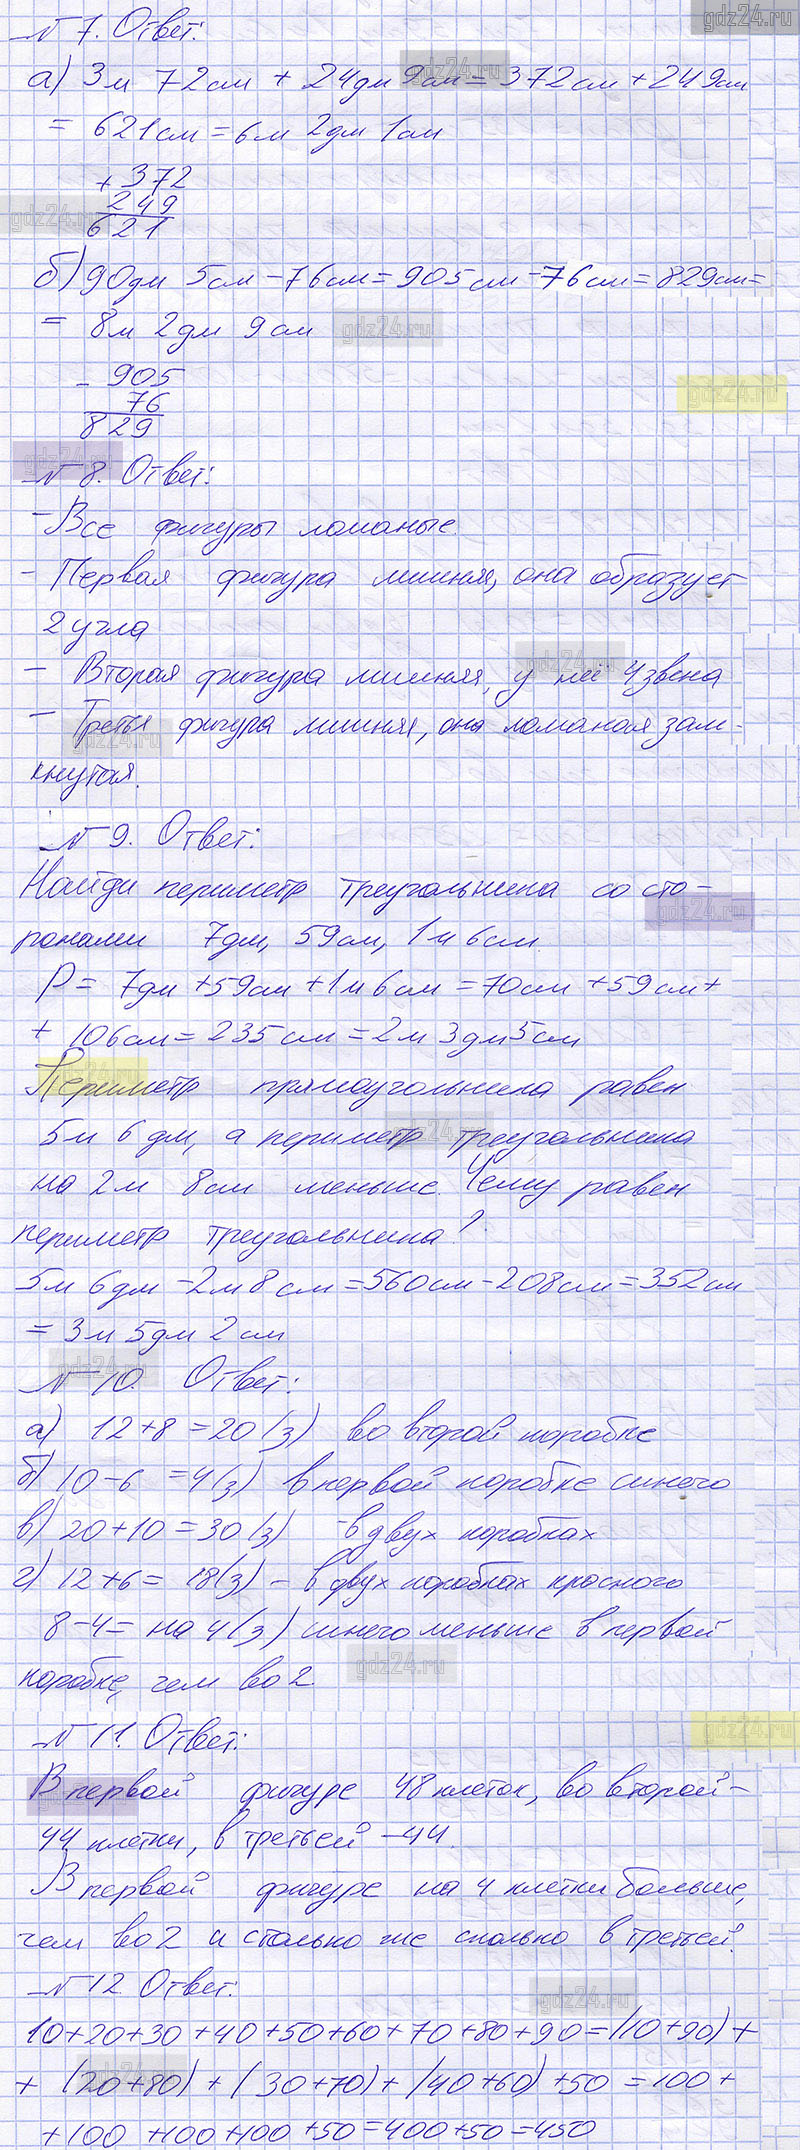 gdz24.ru
№ 7. Ответ:
а) 3м 72см + 24дм 9см = 372см + 249см
= 621см = 6м 2дм 1см
+ 372
249
621
б) 90дм 5см - 76см = 905см - 76см = 829см =
= 8м 2дм 9см
- 905
76
829
№ 8. Ответ:
- Все фигуры ломаные.
- Первая фигура лишняя, она образует
2 угла
- Вторая фигура лишняя, у неё 4 звена
- Третья фигура лишняя, она ломаная зам-
кнутая.
№ 9. Ответ:
Найди периметр треугольника со сто-
ронами 7дм, 59см, 1м 6см.
P = 7дм + 59см + 1м 6см = 70см + 59см +
+ 106см = 235см = 2м 3дм 5см
Периметр прямоугольника равен
5м 6дм, а периметр треугольника
на 2м 8см меньше. Чему равен
периметр треугольника?
5м 6дм - 2м 8см = 560см - 208см = 352см
= 3м 5дм 2см
№ 10. Ответ:
а) 12 + 8 = 20 (з) во второй коробке
б) 10 - 6 = 4 (з) в первой коробке синего
в) 20 + 10 = 30 (з) - в двух коробках
г) 12 + 6 = 18 (з) - в двух коробках красного
8 - 4 = на 4 (з) синего меньше в первой
коробке, чем во 2.
№ 11. Ответ:
В первой фигуре 48 клеток, во второй -
44 клетки, в третьей - 44.
В первой фигуре на 4 клетки больше,
чем во 2 и столько же сколько в третьей.
№ 12. Ответ:
10 + 20 + 30 + 40 + 50 + 60 + 70 + 80 + 90 = (10 + 90) +
+ (20 + 80) + (30 + 70) + (40 + 60) + 50 = 100 +
+ 100 + 100 + 100 + 50 = 400 + 50 = 450